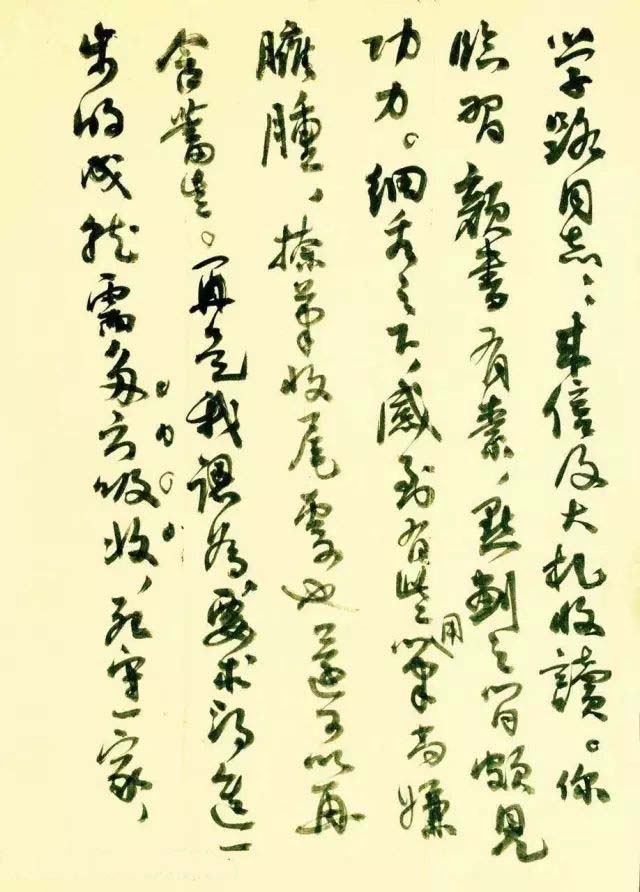 学路同志：来信及大札收讀。你
临習颜書有素，點劃之间颇見
功力。细看之下，感到有些用筆尚嫌
臃腫，捺筆收尾處也還可以再
含蓄些。再是我認為要求得進一
步的成就需多方吸收，死守一家，